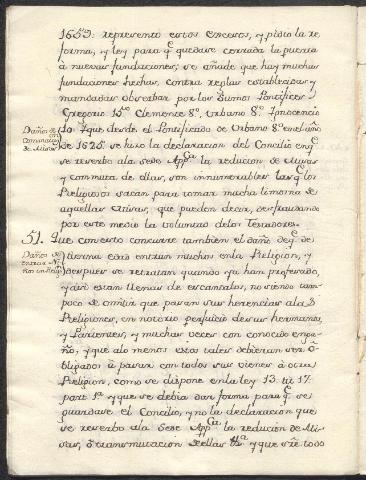 1655: representò estos excesos, y pidio la re
forma, y ley para q.e quedase cerrada la puerta
à nuevas fundaciones; se añade que hay muchas
fundaciones hechas, contra reglas establecidas y
mandadas observar por los Sumos Pontifices
Gregorio 15.º Clemente 8.º Urbano 8.º Ynocencio
Daños de
conmutacion
de Misas
que desde el Pontificado de Urbano 8.º en el año
de 1625 se hizo la declaracion del Concilio en q.e
se reservò alа Sede App.ca la reducion de Misas
y commuta de ellas, son innumerables las q.e los
Religiosos sacan para tomar mucha limosna de
aquellas Misas, que pueden decir, defraudando
por este medio la voluntad delos Testadores.
51. Que con esto concurre tambien el daño de q.e de
Daños de
entrar Ni
ños en Relig.n
diez una edad entran muchos en la Religion, y
despues se retratan quando ya han profesado,
y asi estan llenas de escandalos, no siendo tam
poco de omitir que pasan sus herencias alas
Religiones, en notorio perjuicio de sus hermanos,
y Parientes, y muchas veces con conocido enga
ño; y que alo menos estos tales debieran ser o
bligados à pasar con todos sus vienes à otra
Religion, como se dispone en la ley 13. tit. 17.
part. 1.a y que se debia dar forma para q.e se
guardase el Concilio, y no la declaracion que
se reservò ala Sede App.ca la reducion de Mi
sas, ò transmutacion de ellas &.a y que sre todo